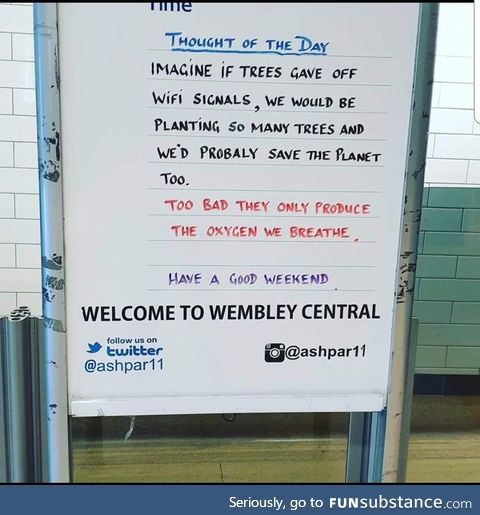 Time
THOUGHT OF THE DAY
IMAGINE IF TREES GAVE OFF
WiFi SIGNALS, WE WOULD BE
PLANTING SO MANY TREES AND
WE'D PROBALY SAVE THE PLANET
TOO.
TOO BAD THEY ONLY PRODUCE
THE OXYGEN WE BREATHE.
HAVE A GOOD WEEKEND.
WELCOME TO WEMBLEY CENTRAL
follow us on
twitter
@ashpar11
@ashpar11
Seriously, go to FUNsubstance.com